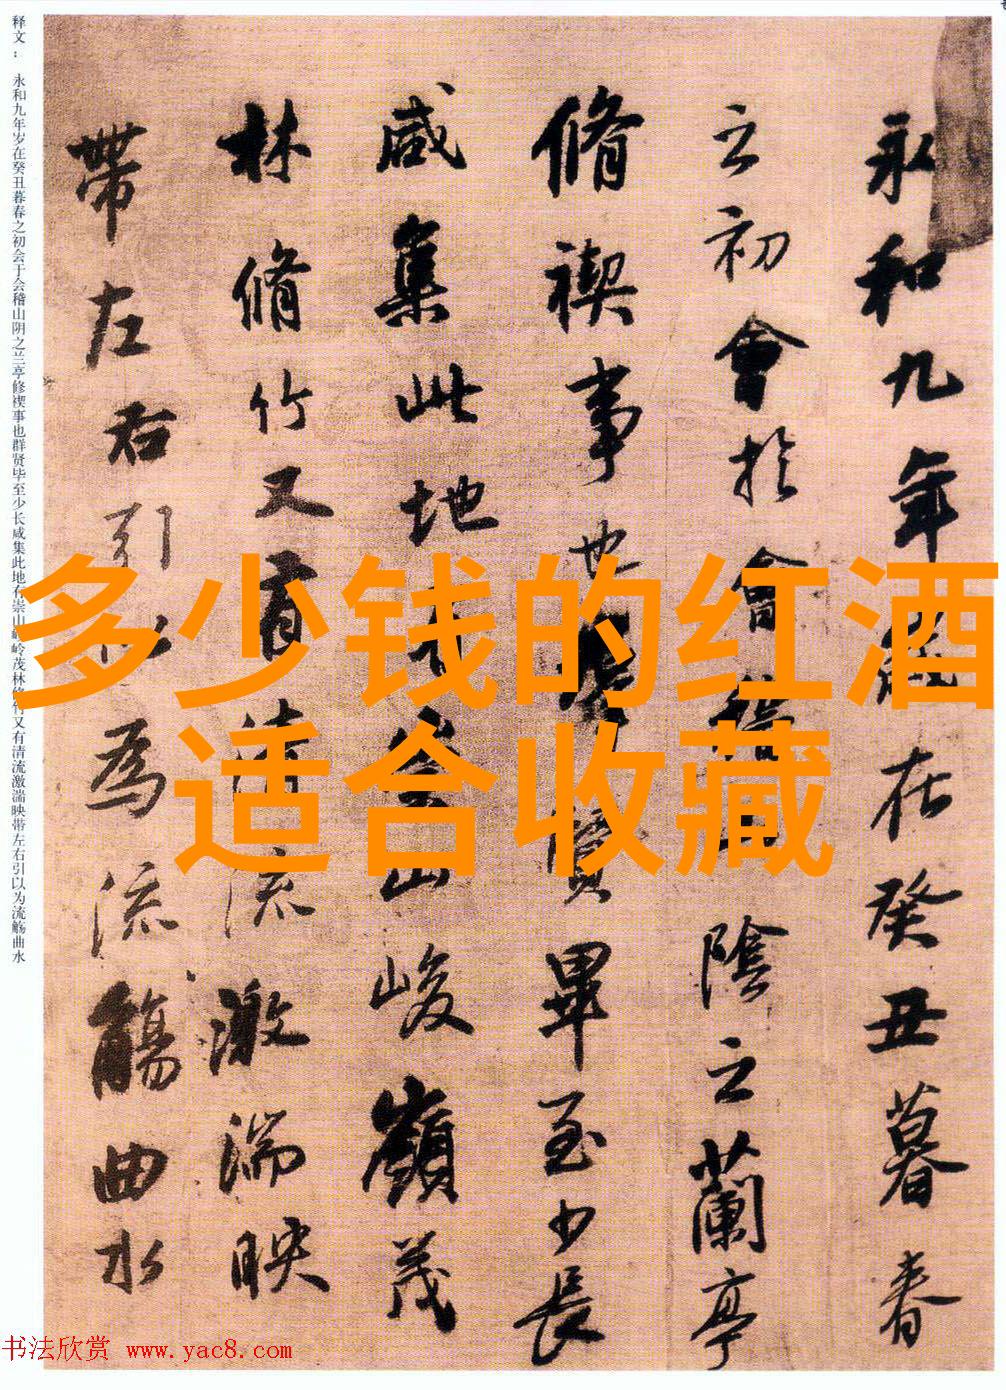 永和九年歲在癸丑暮春
之初會於會稽山陰之蘭亭
脩禊事也羣賢畢至少長
咸集此地有崇山峻嶺茂
林脩竹又有清流激湍映
帶左右引以為流觴曲水
释文： 永和九年岁在癸丑暮春之初会于会稽山阴之兰亭修禊事也群贤毕至少长咸集此地有崇山峻岭茂林修竹又有清流激湍映带左右引以为流觞曲水
多少钱的红酒
适合收藏
书法欣赏 www.yac8.com